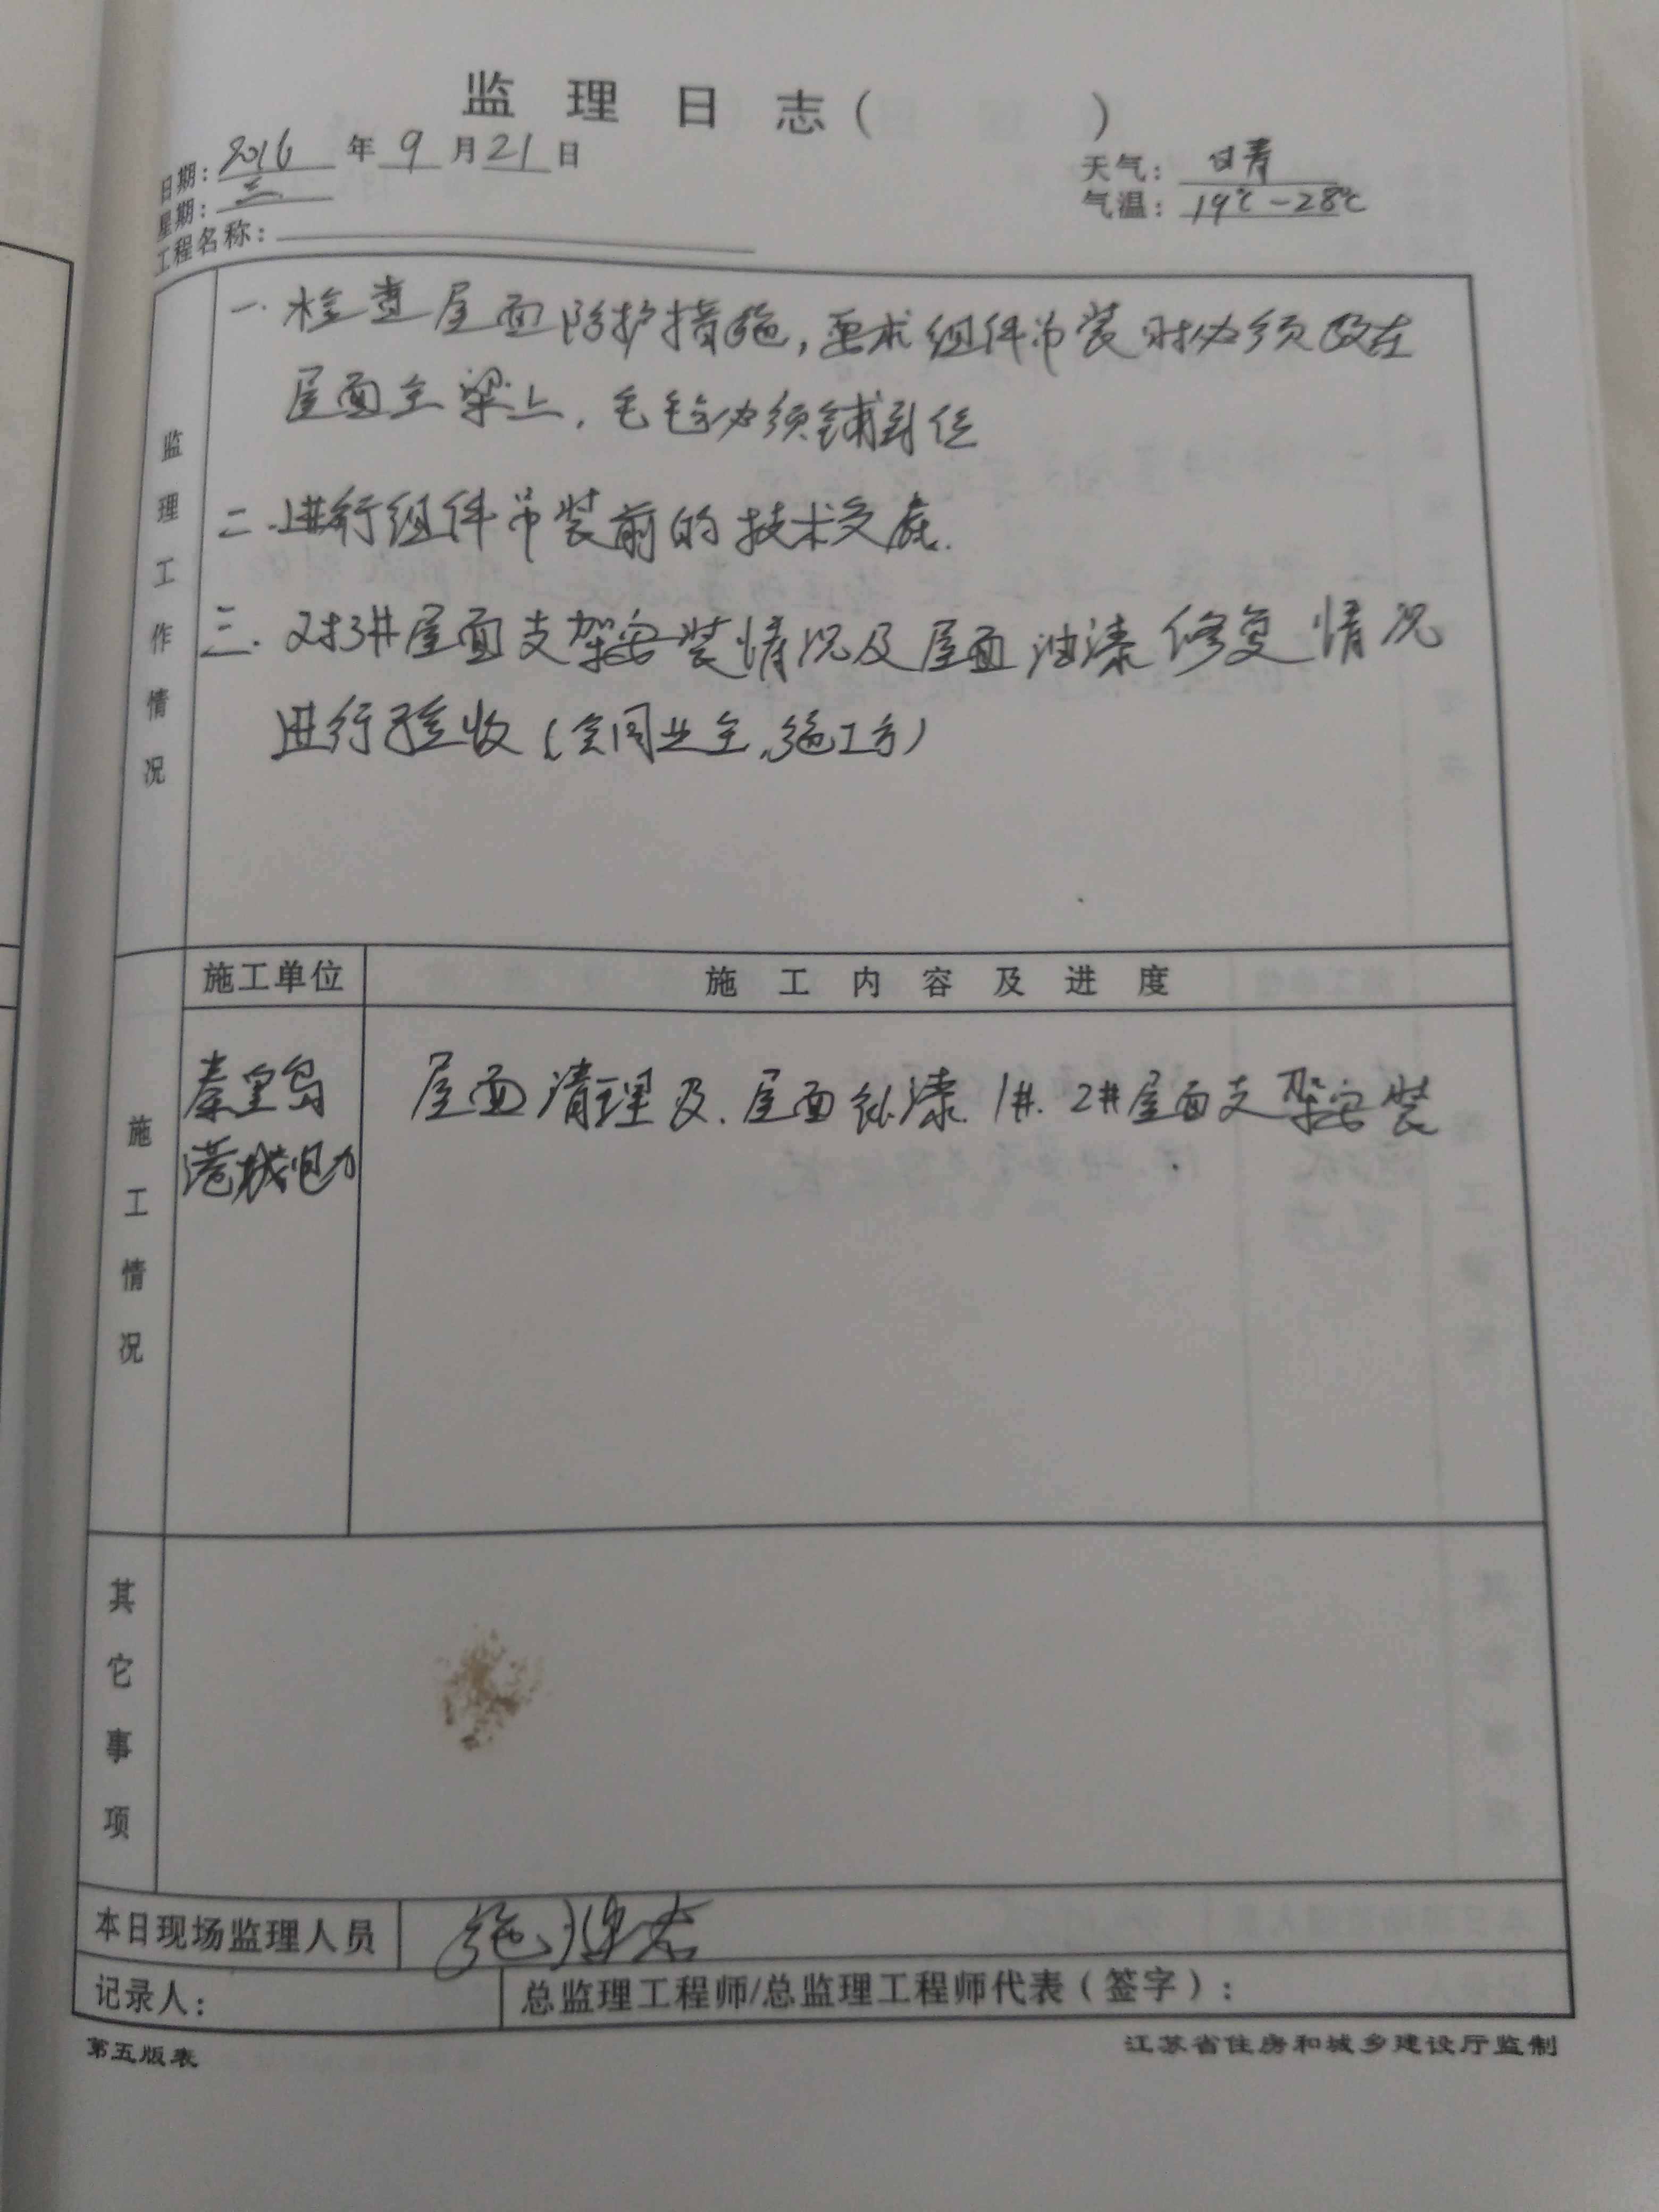 监理日志( )
日期: 2016 年 9 月 21 日
天气: 晴
星期: 三
气温: 19℃-28℃
工程名称:
监理工作情况
一.检查屋面防护措施,要求组件吊装时必须放在
屋面主梁上,毛毛必须铺到位
二.进行组件吊装前的技术交底.
三.对3#屋面支架安装情况及屋面油漆修复情况
进行验收(会同业主,施工方)
施工单位 施工内容及进度
施工情况
秦皇岛 屋面清理及.屋面补漆.1#.2#屋面支架安装
港城电力
其它事项
本日现场监理人员 施
记录人: 总监理工程师/总监理工程师代表(签字):
第五版表 江苏省住房和城乡建设厅监制